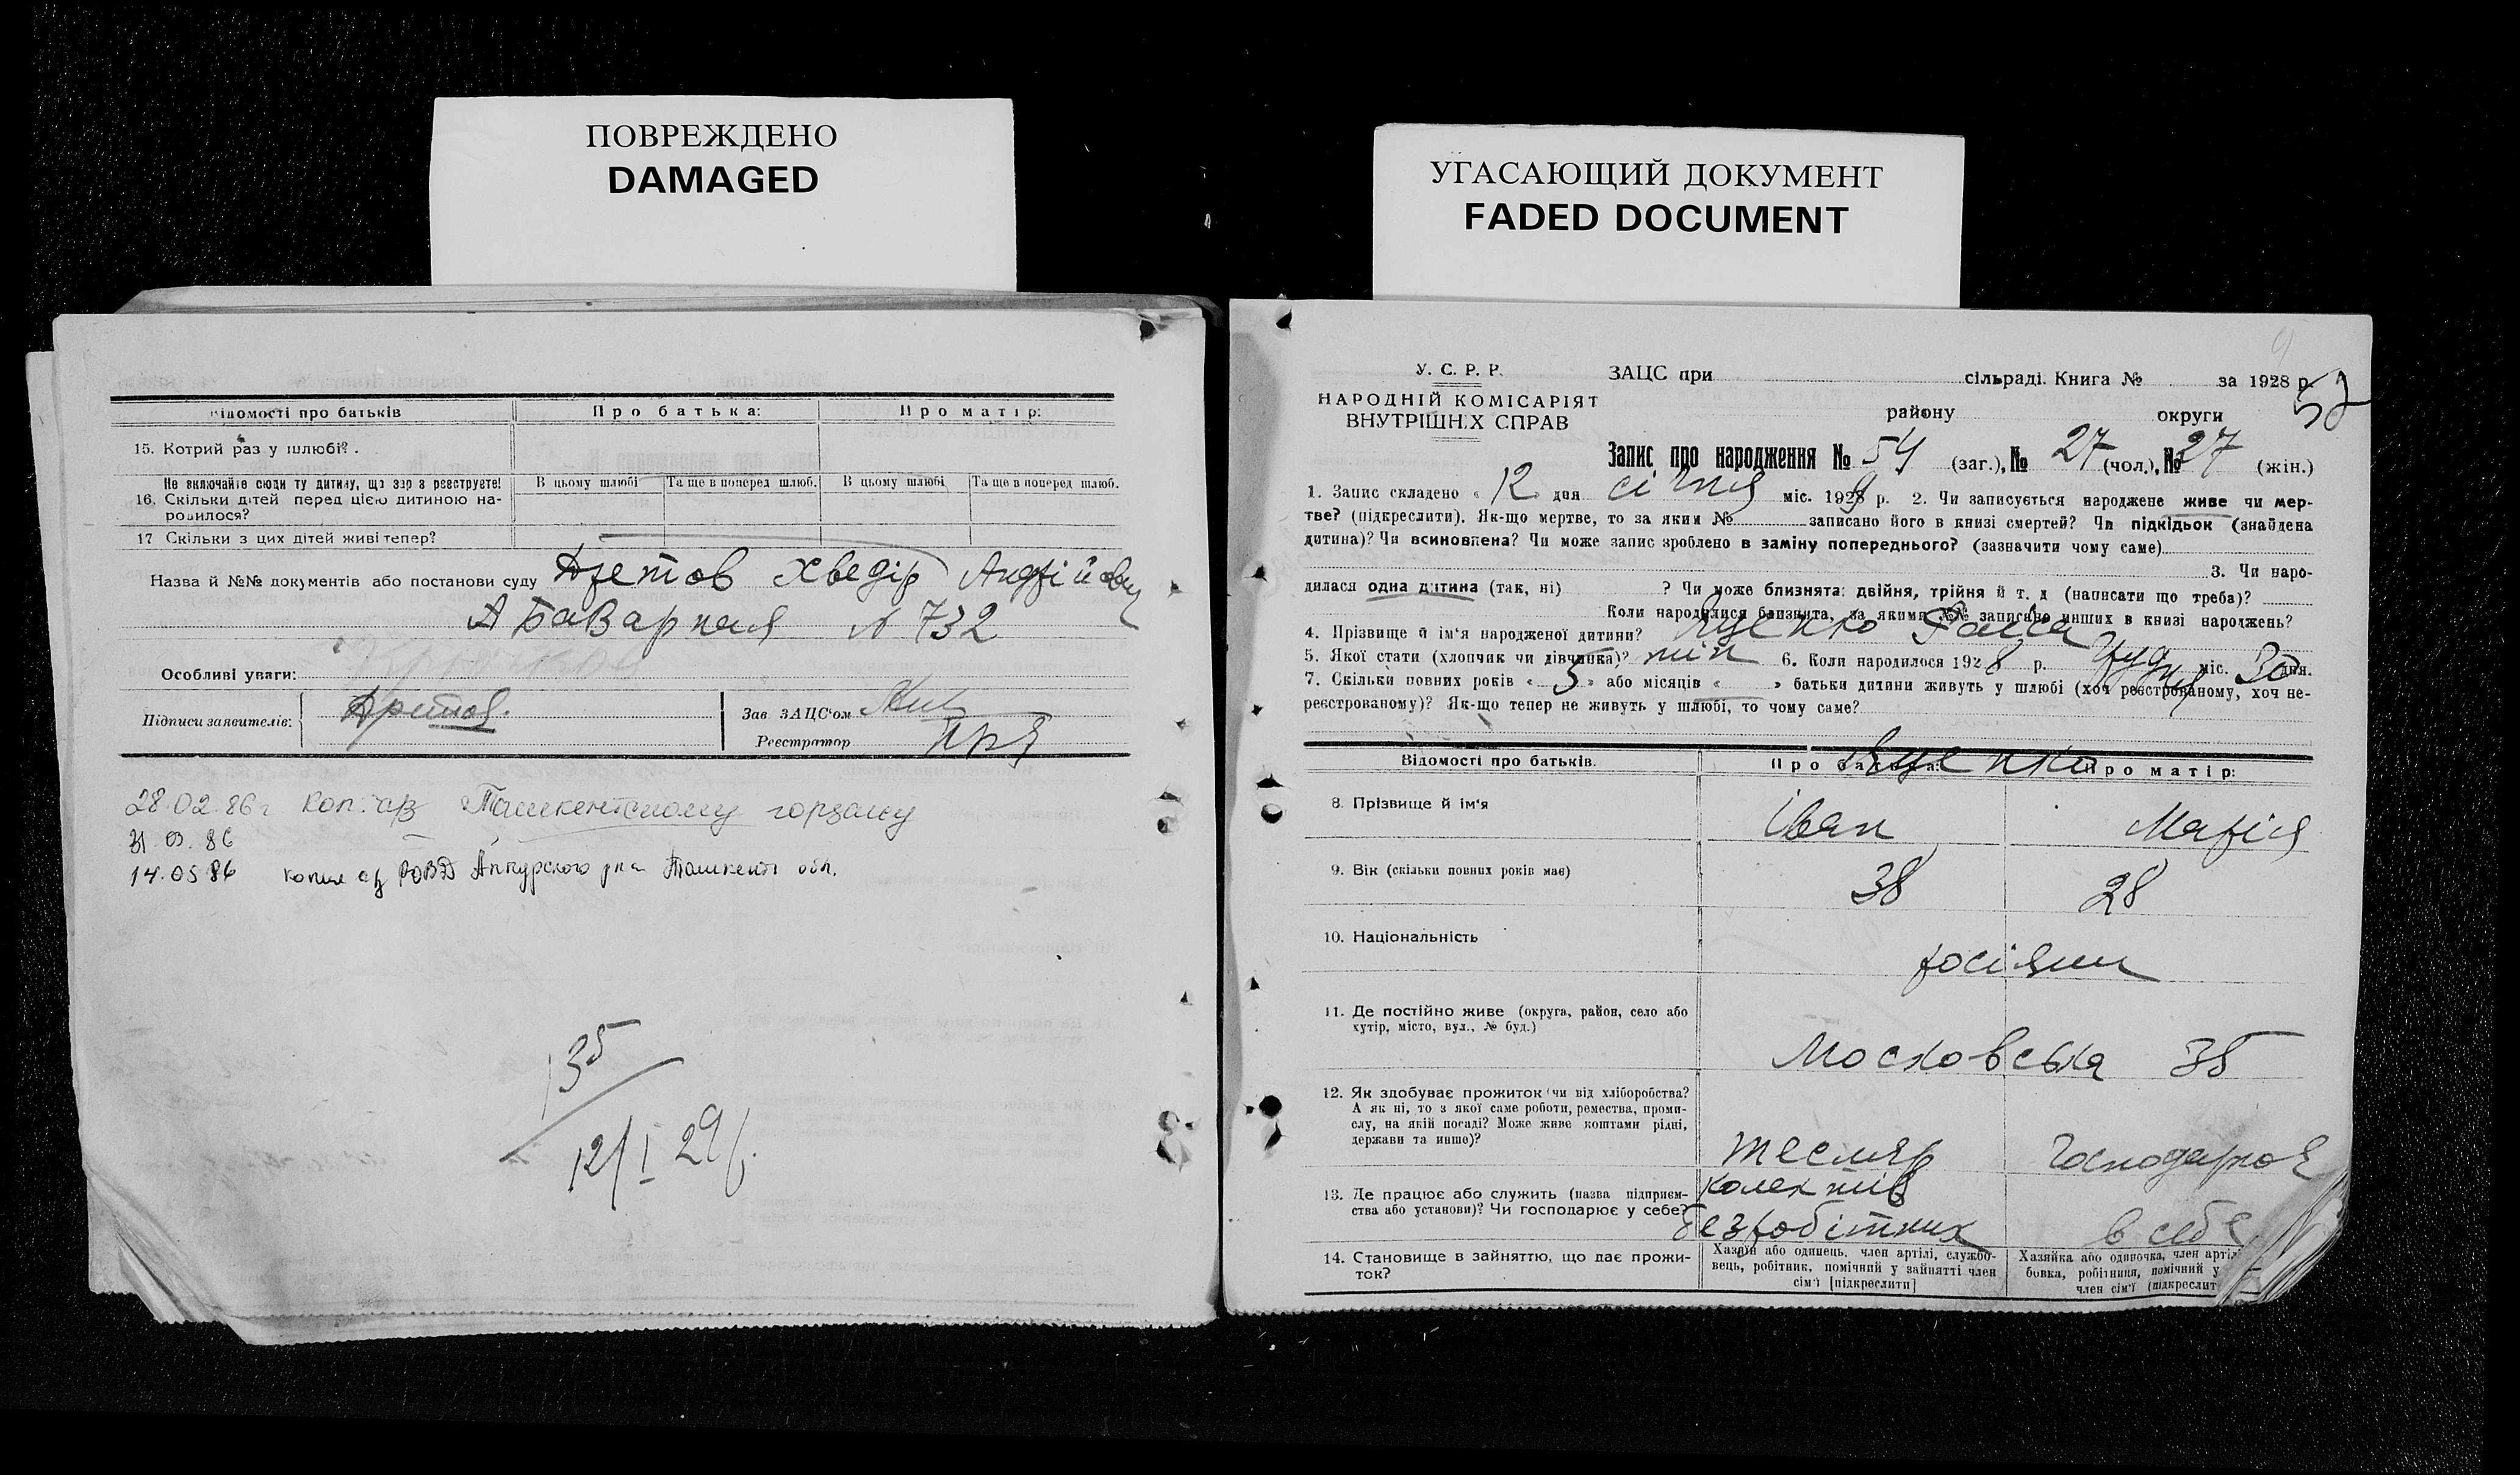 ПОВРЕЖДЕНО
DAMAGED
УГАСАЮЩИЙ ДОКУМЕНТ
FADED DOCUMENT
Відомості про батьків
Про батька:
Про матір:
15. Котрий раз у шлюбі?.
Не включайте сюди ту дитину, що зар з реєструєте!
16. Скільки дітей перед цією дитиною на-
родилося?
В цьому шлюбі
Та ще в поперед шлюб.
В цьому шлюбі
Та ще в поперед шлюб.
17 Скільки з цих дітей живі тепер?
Назва й №№ документів або постанови суду Хведір Андрійович
№ 732
Особливі уваги:
Підписи заявителів:
Зав ЗАЦС'ом
Реєстратор
28.02.86г Коп. а/з Ташкентскому горзагсу
31.03.86
14.05 86 копия аз РОВД р-на Ташкент обл.
135
12/I 29р.
У. С. Р. Р.
НАРОДНІЙ КОМІСАРІЯТ
ВНУТРІШНІХ СПРАВ
ЗАЦС при сільраді. Книга № за 1928 р.
району округи
Запис про народження № 54 (заг.), № 27 (чол.), № 27 (жін.)
1. Запис складено « 12 » дня січня міс. 1929 р. 2. Чи записується народжене живе чи мер-
тве? (підкреслити). Як-що мертве, то за яким № записано його в книзі смертей? Чи підкідьок (знайдена
дитина)? Чи всиновлена? Чи може запис зроблено в заміну попереднього? (зазначити чому саме)
3. Чи наро-
дилася одна дитина (так, ні) ? Чи може близнята: двійня, трійня й т. д (написати що треба)?
Коли народилися близнята, за якими №№ записано инших в книзі народжень?
4. Прізвище й ім'я народженої дитини? Яценко Раїса
5. Якої стати (хлопчик чи дівчинка)? жін 6. Коли народилося 1928 р. Грудня міс. 30 дня.
7. Скільки повних років « 5 » або місяців « » батьки дитини живуть у шлюбі (хоч реєстрованому, хоч не-
реєстрованому)? Як-що тепер не живуть у шлюбі, то чому саме?
Відомості про батьків.
Про батька:
Про матір:
Яценко
8. Прізвище й ім'я
Іван
Марія
9. Вік (скільки повних років має)
38
28
10. Національність
росіяни
11. Де постійно живе (округа, район, село або
хутір, місто, вул., № буд.)
Московська 38
12. Як здобуває прожиток (чи від хліборобства?
А як ні, то з якої саме роботи, ремества, проми-
слу, на якій посаді? Може живе коштами рідні,
держави та инше)?
тесляр
Господарює
13. Де працює або служить (назва підприєм-
ства або установи)? Чи господарює у себе?
колектив
безробітних
в себе
14. Становище в зайняттю, що дає прожи-
ток?
Хазяїн або одинець, член артілі, службо-
вець, робітник, помічний у зайнятті член
сім'ї [підкреслити]
Хазяйка або одиночка, член артіл
бовка, робітниця, помічний у
член сім'ї (підкреслит